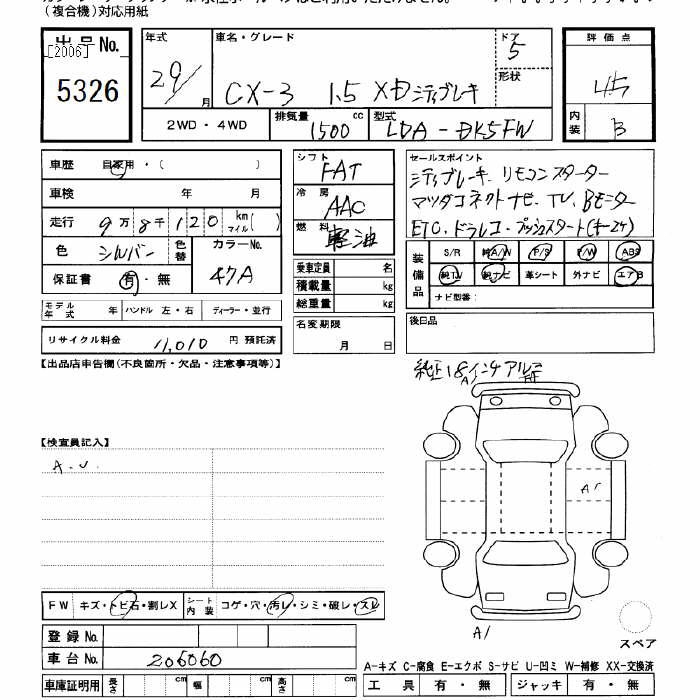 （複合機）対応用紙
出品No.
[2006]
5326
年式
29
月
車名・グレード
CX-3 1.5 XD
ドア
5
形状
2WD・4WD
排気量
1500 cc
型式
LDA-DK5FW
評価点
4.5
内装
B
車歴 自家用・（ ）
車検 年 月
走行 9万8千120 km マイル( )
色 シルバー 色替
カラーNo.
47A
保証書 有・無
モデル年式 年 ハンドル 左・右 ディーラー・並行
リサイクル料金 11,010 円 預託済
シフト
FAT
冷房
AAC
燃料
軽油
乗車定員 名
積載量 kg
総重量 kg
名変期限
月 日
セールスポイント
シティブレーキ リモコンスターター
マツダコネクトナビ、TV、Bモニター
ETC、ドラレコ・プッシュスタート(キー2ケ)
装備品
S/R 純A/W P/S P/W ABS
純TV 純ナビ 革シート 外ナビ エアB
ナビ型番：
後日品
【出品店申告欄(不良箇所・欠品・注意事項等)】
純正18インチアルミ
【検査員記入】
A.U
A1
A1
FW キズ・トビ石・割レX
シート内装 コゲ・穴・汚レ・シミ・破レ・スレ
登録No.
車台No. 206060
車庫証明用 長さ cm 幅 cm 高さ cm
スペア
A-キズ C-腐食 E-エクボ S-サビ U-凹ミ W-補修 XX-交換済
工具 有・無 ジャッキ 有・無